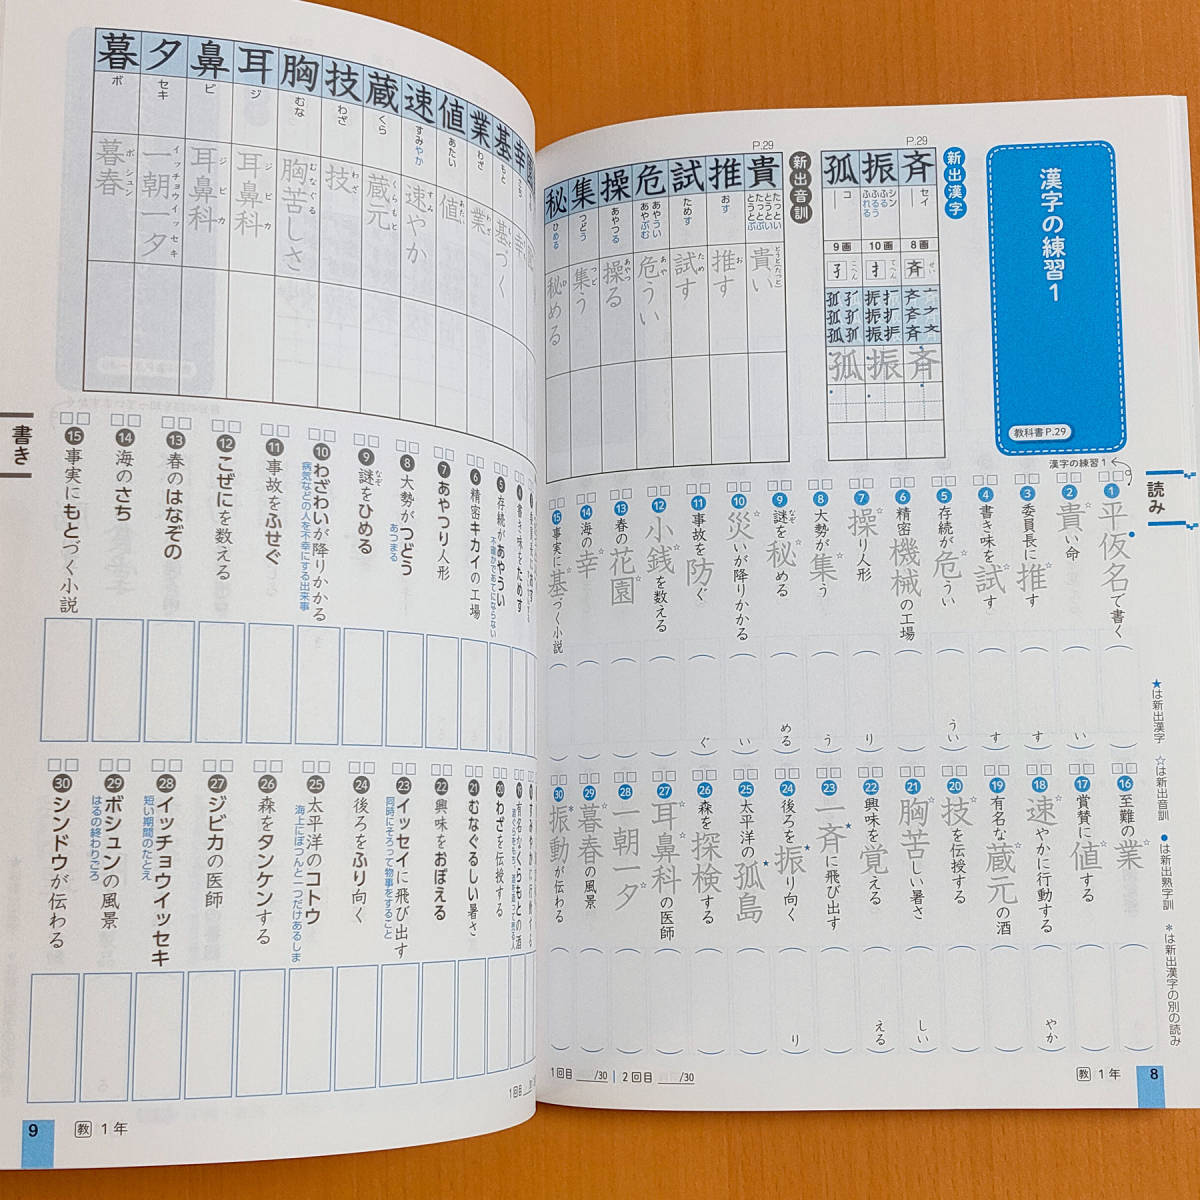 漢字の練習1
教科書P.29
新出漢字
P.29
斉
セイ
8画
斉
せい
振
シン
ふる
ふるう
ふれる
10画
扌
てへん
孤
コ
9画
孑
こへん
斉
振
孤
新出音訓
P.29
貴
たっとい
とうとい
たっとぶ
とうとぶ
貴い
推
おす
推す
試
ためす
試す
危
あやうい
あやぶむ
危うい
操
あやつる
操る
集
つどう
集う
秘
ひめる
秘める
読み
漢字の練習1
1 平仮名で書く
2 貴い命
い
3 委員長に推す
す
4 書き味を試す
す
5 存続が危うい
うい
6 精密機械の工場
7 操り人形
り
8 大勢が集う
う
9 謎を秘める
なぞ
める
10 災いが降りかかる
い
11 事故を防ぐ
ぐ
12 小銭を数える
13 春の花園
14 海の幸
15 事実に基づく小説
16 至難の業
17 賞賛に値する
18 速やかに行動する
やか
19 有名な蔵元の酒
20 技を伝授する
21 胸苦しい暑さ
しい
22 興味を覚える
える
23 一斉に飛び出す
24 後ろを振り向く
り
25 太平洋の孤島
26 森を探検する
27 耳鼻科の医師
28 一朝一夕
29 暮春の風景
30 振動が伝わる
★は新出漢字 ☆は新出音訓 ●は新出熟字訓 *は新出漢字の別の読み
1回目 /30 2回目 /30
教 1年
8
幸
基
もと
基づく
業
わざ
業
値
あたい
値
速
すみやか
速やか
蔵
くら
蔵元
くらもと
技
わざ
技
胸
むな
胸苦しさ
むなぐる
耳
ジ
耳鼻科
ジビカ
鼻
ビ
耳鼻科
ジビカ
夕
セキ
一朝一夕
イッチョウイッセキ
暮
ボ
暮春
ボシュン
書き
5 存続があやうい
不確かであてにならない
6 精密キカイの工場
7 あやつり人形
8 大勢がつどう
あつまる
9 謎をひめる
なぞ
10 わざわいが降りかかる
病気などの人を不幸にする出来事
11 事故をふせぐ
12 こぜにを数える
13 春のはなぞの
14 海のさち
15 事実にもとづく小説
20 わざを伝授する
21 むなぐるしい暑さ
22 興味をおぼえる
23 イッセイに飛び出す
同時にそろって物事をすること
24 後ろをふり向く
25 太平洋のコトウ
海上にぽつんと一つだけあるしま
26 森をタンケンする
27 ジビカの医師
28 イッチョウイッセキ
短い期間のたとえ
29 ボシュンの風景
はるの終わりごろ
30 シンドウが伝わる
1回目
教 1年
9